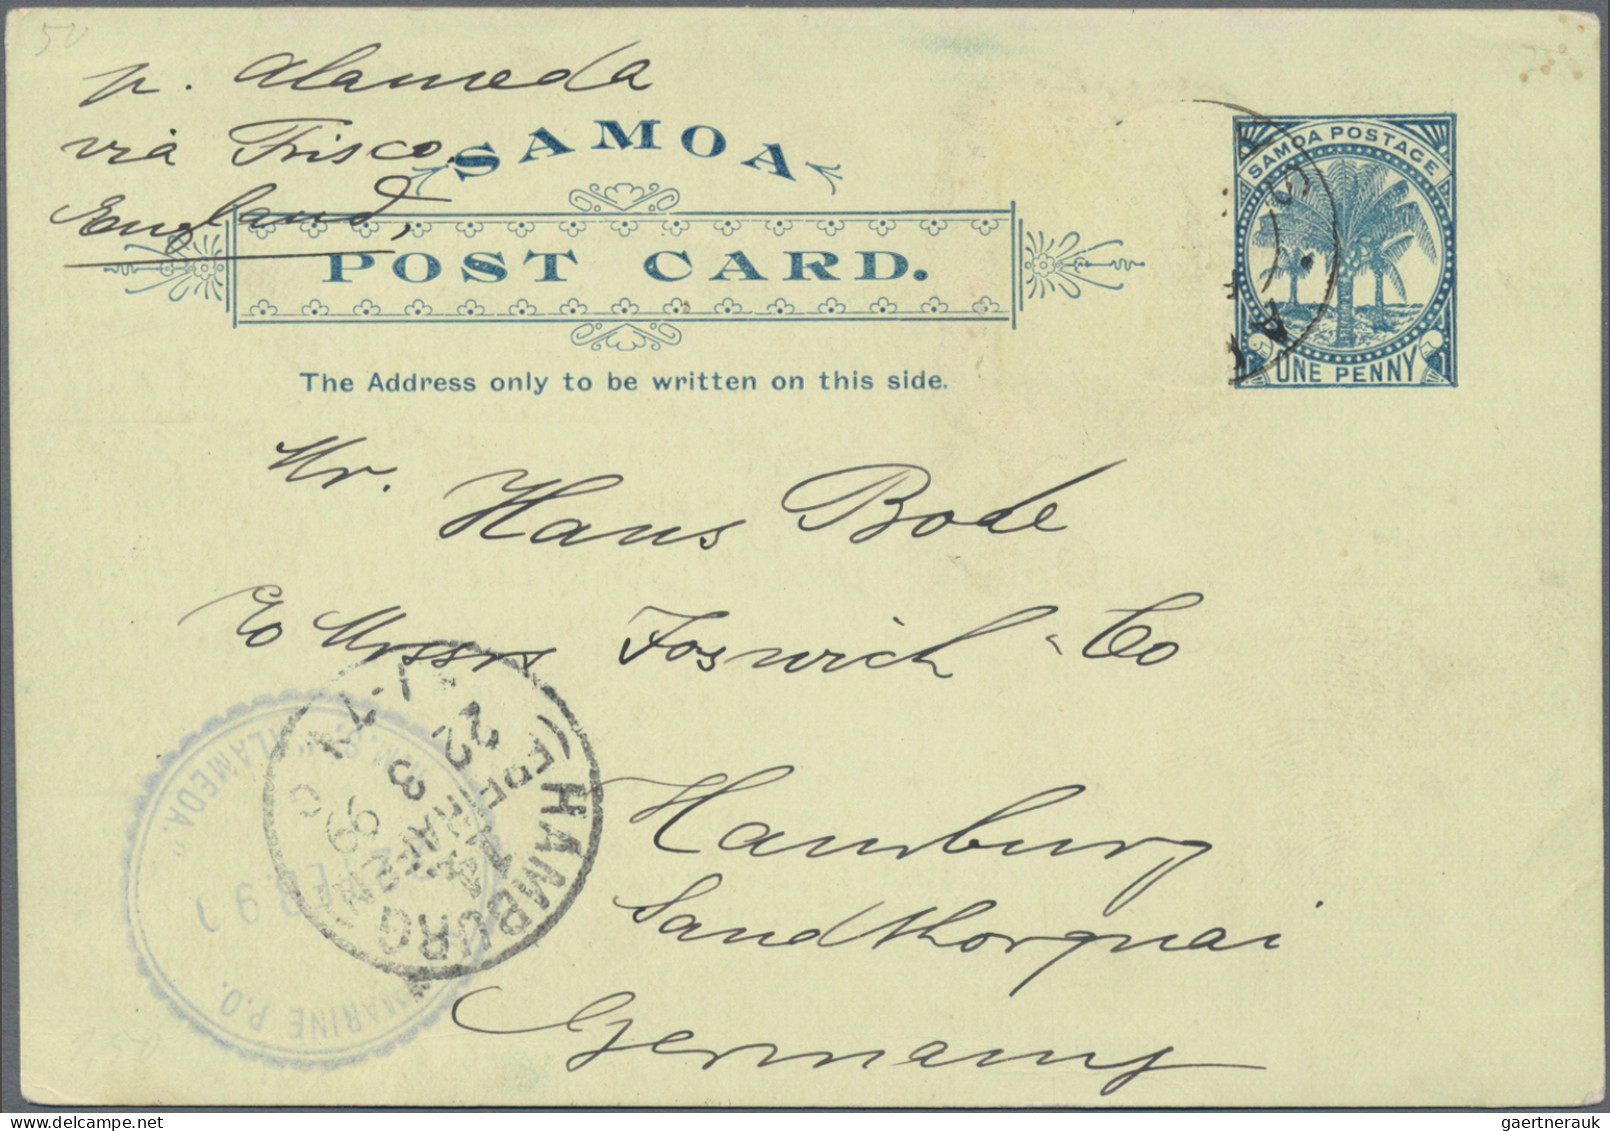 50
p. Alameda
via Frisco,
England,
SAMOA
POST CARD.
The Address only to be written on this side.
SAMOA POSTAGE
ONE PENNY
Mr. Hans Bode
c/o Messrs Foswich & Co
Hamburg
Sandthorquai
Germany
HAMBURG
(FREIHAFEN)
22 3 99
"ALAMEDA."
FEB 9
MARINE P.O.
gaertnerauk @ delcampe.net